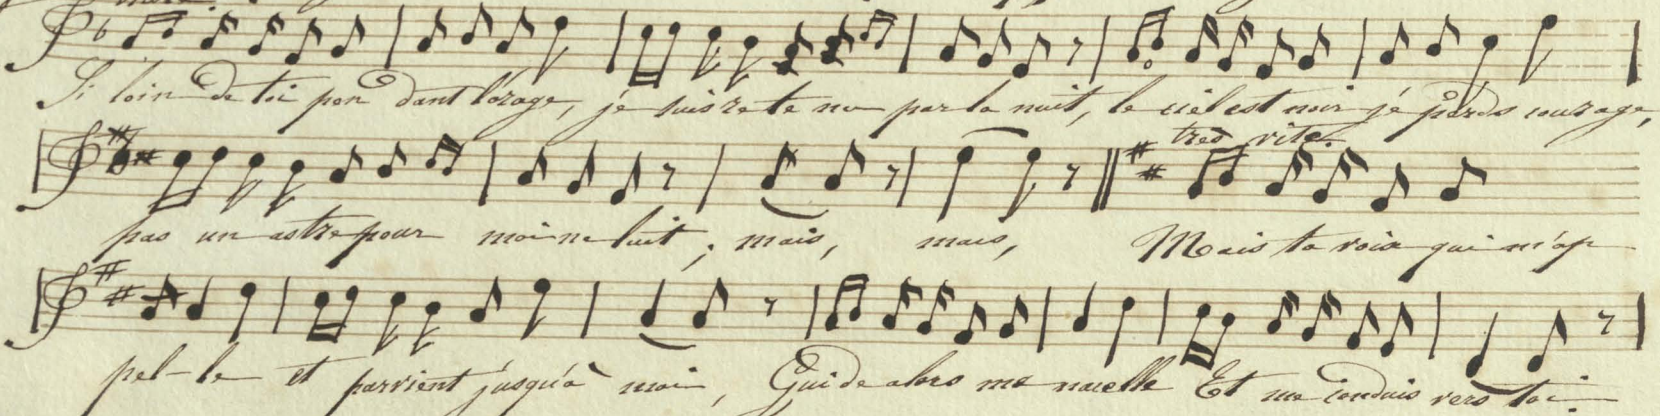 Si loin de toi pen dant l'orage, je suis re te nu par la nuit, le ciel est noir je perds courage,
très vite.
pas un astre pour moi ne luit, mais, mais, Mais ta voix qui m'ap
pel-le et parvient jusqu'à moi, Guide alors ma nacelle Et me conduis vers toi.